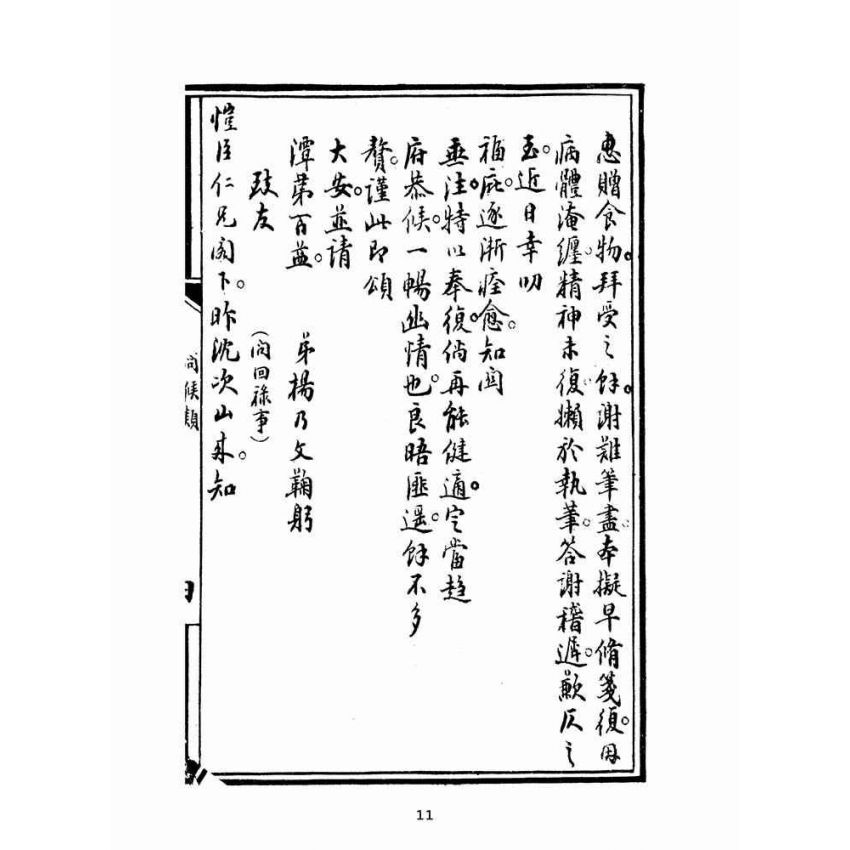 惠贈食物。拜受之餘。謝難筆盡。本擬早脩箋復。因
病體淹纏。精神未復。懶於執筆。答謝稽遲。歉仄之
至。近日幸叨
福庇。逐漸痊愈。知関
垂注。特以奉復。倘再能健適。定當趋
府恭候。一暢幽情也。良晤匪遥。餘不多
贅。謹此即頌
大安。並請
潭第百益。 弟楊乃文鞠躬
致友 (向回祿事)
愷臣仁兄閣下。昨沈次山來。知
問候類
11